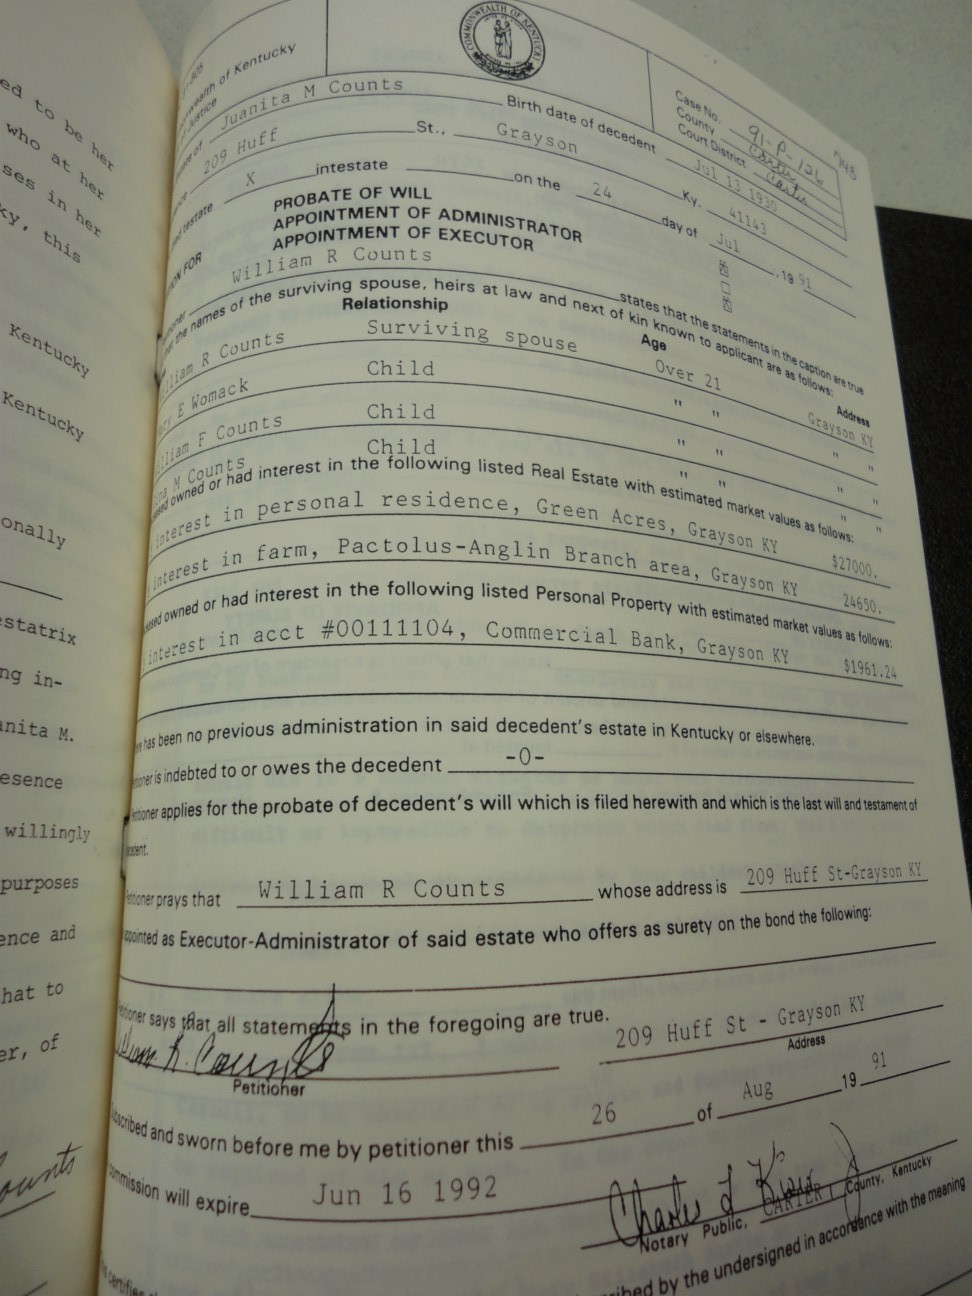 ed to be her
who at her
ses in her
ky, this
Kentucky
Kentucky
onally
estatrix
ng in-
anita M.
esence
willingly
purposes
ence and
hat to
er, of
ounts
COMMONWEALTH OF KENTUCKY
wealth of Kentucky
Justice
Case No. 91-P-126
County Carter
Court District Carter
Juanita M Counts Birth date of decedent Jul 13 1930
209 Huff St., Grayson Ky. 41143
testate X intestate on the 24 day of Jul, 19 91
ION FOR
PROBATE OF WILL
APPOINTMENT OF ADMINISTRATOR
APPOINTMENT OF EXECUTOR
William R Counts states that the statements in the caption are true
the names of the surviving spouse, heirs at law and next of kin known to applicant are as follows:
Relationship Age Address
lliam R Counts Surviving spouse Over 21 Grayson KY
E Womack Child " " " "
lliam F Counts Child " " " "
M Counts Child " " " "
ased owned or had interest in the following listed Real Estate with estimated market values as follows:
interest in personal residence, Green Acres, Grayson KY $27000.
interest in farm, Pactolus-Anglin Branch area, Grayson KY 24650.
eased owned or had interest in the following listed Personal Property with estimated market values as follows:
interest in acct #00111104, Commercial Bank, Grayson KY $1961.24
ere has been no previous administration in said decedent's estate in Kentucky or elsewhere.
titioner is indebted to or owes the decedent -0-
Petitioner applies for the probate of decedent's will which is filed herewith and which is the last will and testament of
ecedent.
Petitioner prays that William R Counts whose address is 209 Huff St-Grayson KY
appointed as Executor-Administrator of said estate who offers as surety on the bond the following:
Petitioner says that all statements in the foregoing are true.
lliam R. Counts 209 Huff St - Grayson KY
Petitioner Address
ubscribed and sworn before me by petitioner this 26 of Aug 19 91
commission will expire Jun 16 1992
Charles L
Notary Public, CARTER County, Kentucky
ribed by the undersigned in accordance with the meaning